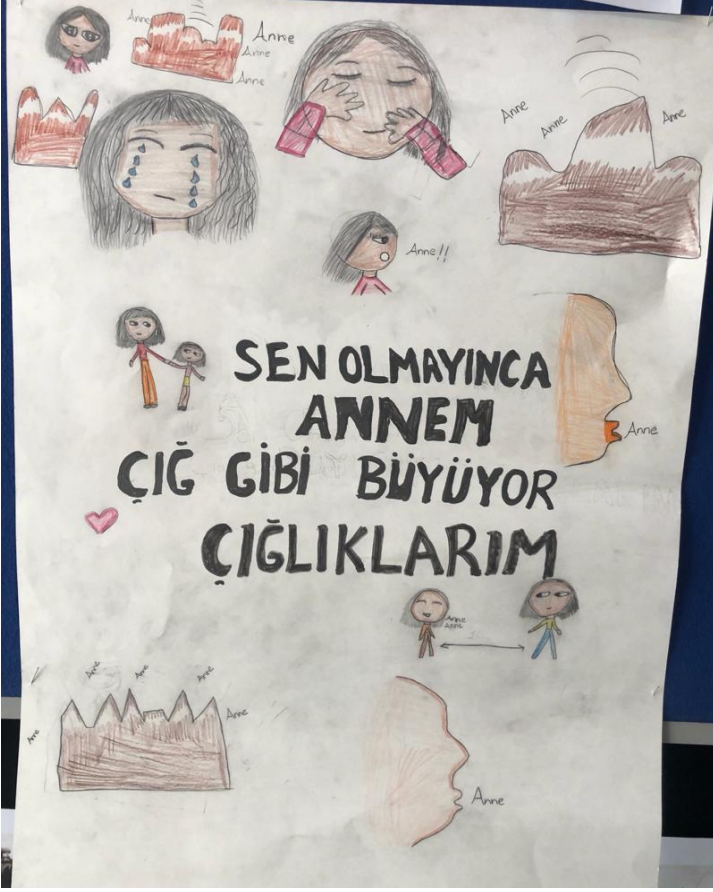 Anne
Anne
Anne
Anne
Anne
Anne
Anne
Anne!!
SEN OLMAYINCA
ANNEM
Anne
ÇIĞ GİBİ BÜYÜYOR
ÇIĞLIKLARIM
Anne
Anne
Anne
Anne
Anne
Anne
Anne
Anne